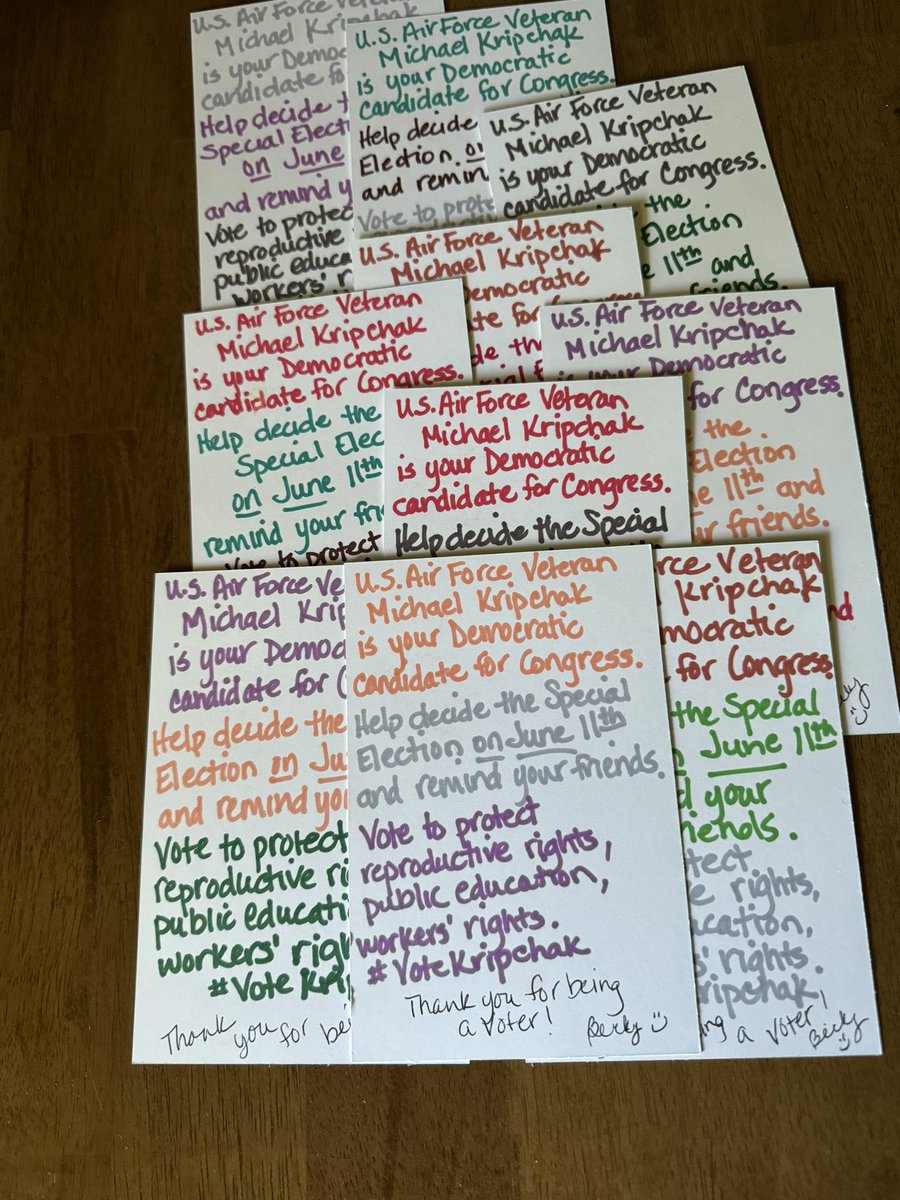 U.S. Air Force Veteran
Michael Kripchak
is your Democratic
candidate for
Help decide
Special
on June
and remind
Vote to protect
reproductive
public
workers'
U.S. Air Force Veteran
Michael Kripchak
is your Democratic
candidate for Congress.
Help decide
Election
and
Vote to
U.S. Air Force Veteran
Michael Kripchak
is your Democratic
candidate for Congress.
the
Election
11th and
friends.
U.S. Air Force Veteran
Michael Kripchak
Democratic
for
the
U.S. Air Force Veteran
Michael Kripchak
is your Democratic
candidate for Congress.
Help decide the
Special
on June 11th
remind your
Vote to protect
U.S. Air Force Veteran
Michael Kripchak
your Democratic
for Congress.
the
Election
11th and
friends.
Becky
U.S. Air Force Veteran
Michael Kripchak
is your Democratic
candidate for Congress.
Help decide the Special
U.S. Air Force
Michael
is your
candidate for
Help decide the
Election on
and remind
Vote to protect
reproductive
public
workers'
#Vote
Thank
you for
U.S. Air Force Veteran
Michael Kripchak
is your Democratic
candidate for Congress.
Help decide the Special
Election on June 11th
and remind your friends.
Vote to protect
reproductive rights,
public education,
workers' rights.
#VoteKripchak
Thank you for being
a voter!
Becky
Veteran
Kripchak
for Congress.
the Special
June 11th
your
rights,
rights
a voter!
Becky